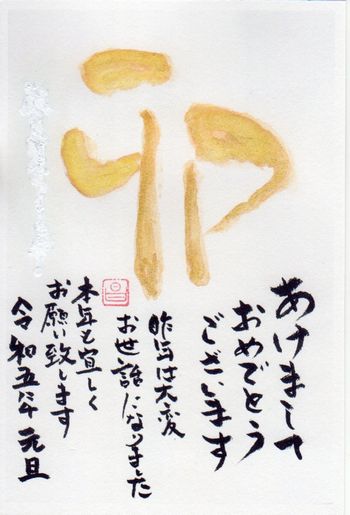 卯
あけまして
おめでとう
ございます
昨年は大変
お世話になりました
本年も宜しく
お願い致します
令和五年 元旦